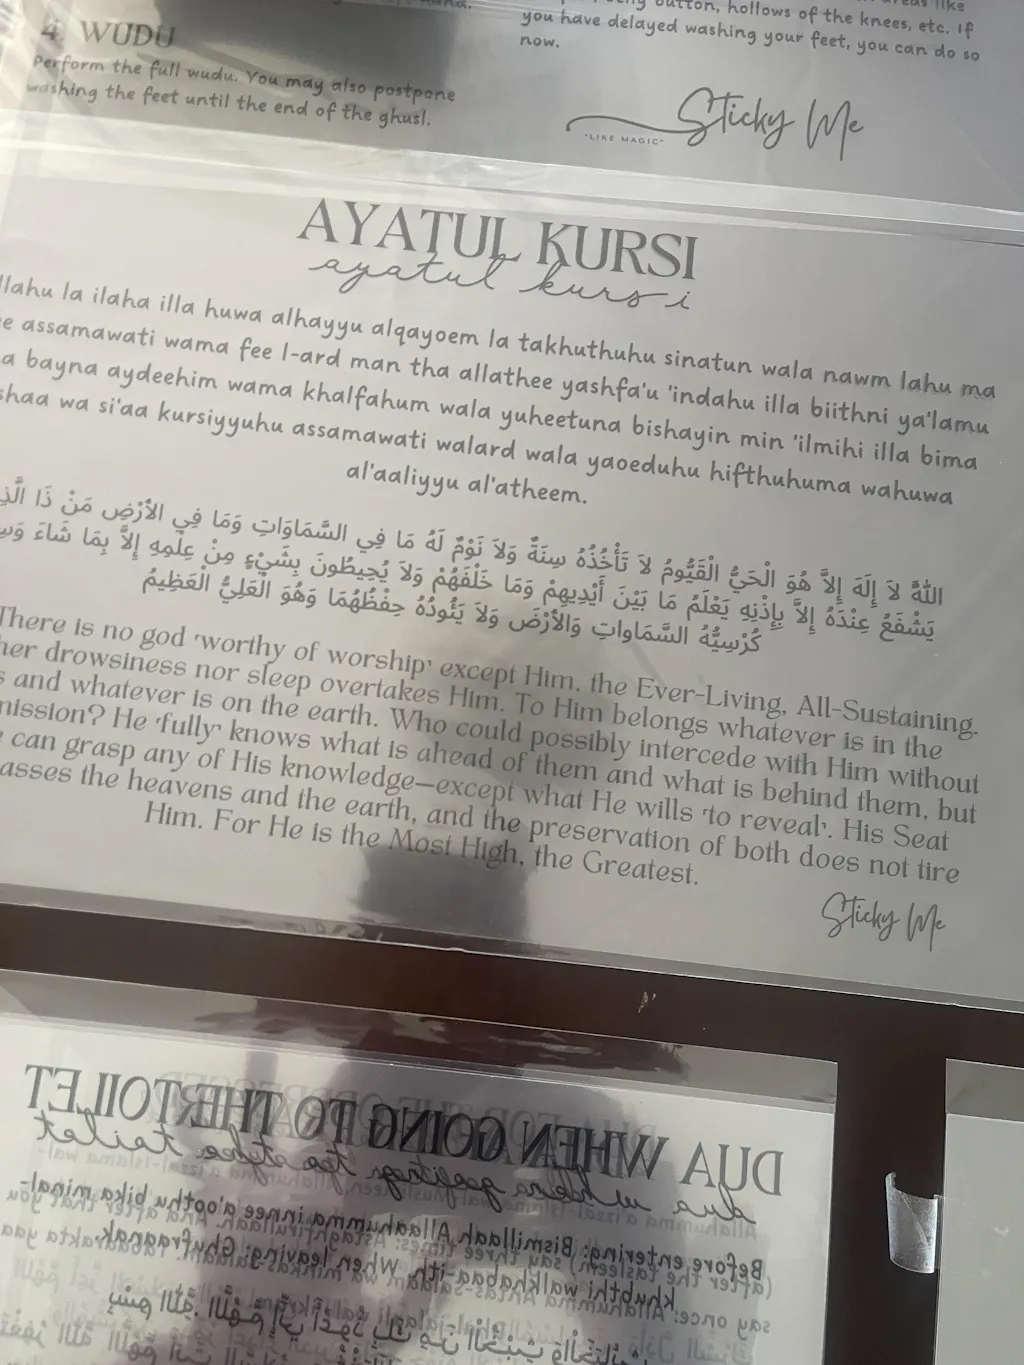 4. WUDU
Perform the full wudu. You may also postpone
washing the feet until the end of the ghusl.
button, hollows of the knees, etc. If
you have delayed washing your feet, you can do so
now.
Sticky Me
"LIKE MAGIC"
AYATUL KURSI
ayatul kursi
llahu la ilaha illa huwa alhayyu alqayoem la takhuthuhu sinatun wala nawm lahu ma
e assamawati wama fee l-ard man tha allathee yashfa'u 'indahu illa biithni ya'lamu
a bayna aydeehim wama khalfahum wala yuheetuna bishayin min 'ilmihi illa bima
shaa wa si'aa kursiyyuhu assamawati walard wala yaoeduhu hifthuhuma wahuwa
al'aaliyyu al'atheem.
اللهُ لاَ إِلَهَ إِلاَّ هُوَ الْحَيُّ الْقَيُّومُ لاَ تَأْخُذُهُ سِنَةٌ وَلاَ نَوْمٌ لَهُ مَا فِي السَّمَاوَاتِ وَمَا فِي الأَرْضِ مَنْ ذَا الَّذِ
يَشْفَعُ عِنْدَهُ إِلاَّ بِإِذْنِهِ يَعْلَمُ مَا بَيْنَ أَيْدِيهِمْ وَمَا خَلْفَهُمْ وَلاَ يُحِيطُونَ بِشَيْءٍ مِنْ عِلْمِهِ إِلاَّ بِمَا شَاءَ وَسِ
كُرْسِيُّهُ السَّمَاواتِ وَالأَرْضَ وَلاَ يَئُودُهُ حِفْظُهُمَا وَهُوَ الْعَلِيُّ الْعَظِيمُ
There is no god 'worthy of worship' except Him, the Ever-Living, All-Sustaining.
her drowsiness nor sleep overtakes Him. To Him belongs whatever is in the
s and whatever is on the earth. Who could possibly intercede with Him without
mission? He 'fully' knows what is ahead of them and what is behind them, but
e can grasp any of His knowledge—except what He wills 'to reveal'. His Seat
asses the heavens and the earth, and the preservation of both does not tire
Him. For He is the Most High, the Greatest.
Sticky Me
DUA WHEN GOING TO THE TOILET
Before entering: Bismillaah Allaahumma innee a'oothu bika minal-
khubthi walkhabaa-ith. When leaving: Ghufraanak
(after the tasleem) say three times: Astaghfirullaah. And after that you
say once: Allahumma Antas-salaam wa minkas-salaam. Tabaarakta yaa